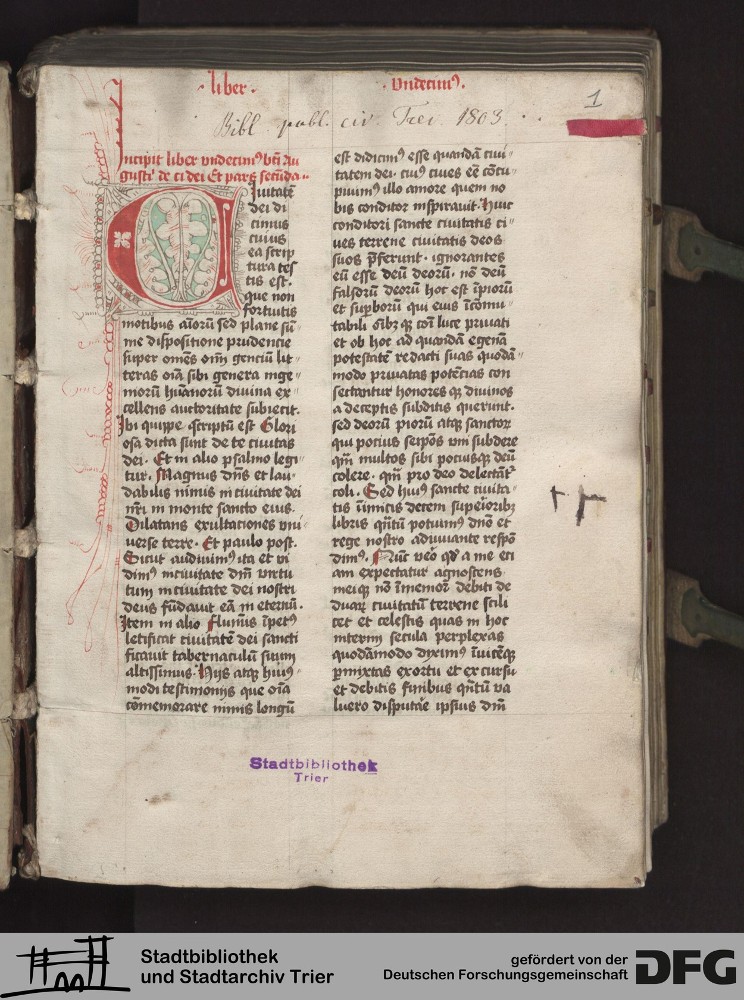 · liber ·
· vndecim⁹ ·
1
Bibl. publ. civ. Trei 1803.
Incipit liber vndecim⁹ bti Au
gusti de ci dei Et pars secūda
Ciuitatē
dei di
cimus
cuius
ea scrip
tura tes
tis est·
que non
fortuitis
motibus aīorū sed plane sū
me dispositione prudencie
super omēs om̄ genciū lit
teras oīa sibi genera inge
niorū hūanorū diuina ex
cellens auctoritate subiecit.
Ibi quippe scriptū est Glori
osa dicta sunt de te ciuitas
dei· Et in alio psalmo legi
tur. Magnus dn̄s et lau
dabilis nimis in ciuitate dei
nr̄i in monte sancto eius.
Dilatans exultationes vni
uerse terre· Et paulo post.
Sicut audiuim⁹ ita et vi
dim⁹ in ciuitate dn̄i virtu
tum in ciuitate dei nostri
deus fūdauit eā in eternū.
Item in alio Flumīs īpet⁹
letificat ciuitatē dei sancti
ficauit tabernaculū suum
altissimus· Hijs atqȝ hui⁹
modi testimonijs que oīa
cōmemorare nimis longū
est didicim⁹ esse quandā ciui
tatem dei· cui⁹ ciues eē cōcu
piuim⁹ illo amore quem no
bis conditor inspirauit· Huic
conditori sancte ciuitatis ci
ues terrene ciuitatis deos
suos p̄ferunt· ignorantes
eū esse deū deorū· nō deū
falsorū deorū hoc est īpiorū
et supborū qui eius īcōmu
tabili oībȝ qȝ cōi luce priuati
et ob hoc ad quandā egenā
potestatē redacti suas quodā
modo priuatas potēcias con
sectantur honores qȝ diuinos
a deceptis subditis querunt·
sed deorū piorū atqȝ sanctor
qui pocius seip̄os vni subdere
qm̄ multos sibi pociusqȝ deū
colere· qm̄ pro deo delectāt
coli· Sed hui⁹ sancte ciuita
tis inimicis decem superioribȝ
libris qn̄tū potuim⁹ dn̄o et
rege nostro adiuuante respō
dim⁹. Nūc veo qd a me eci
am expectatur agnoscens
meiqȝ nō īmemor debiti de
duarȝ ciuitatū terrene scili
cet et celestis quas in hoc
interim seculo perplexas
quodāmodo dyxim⁹ inuicēqȝ
pmixtas exortu et excursu
et debitis finibus qn̄tū va
luero disputāe ipsius dn̄i
Stadtbibliothek
Trier
Stadtbibliothek
und Stadtarchiv Trier
gefördert von der
Deutschen Forschungsgemeinschaft
DFG